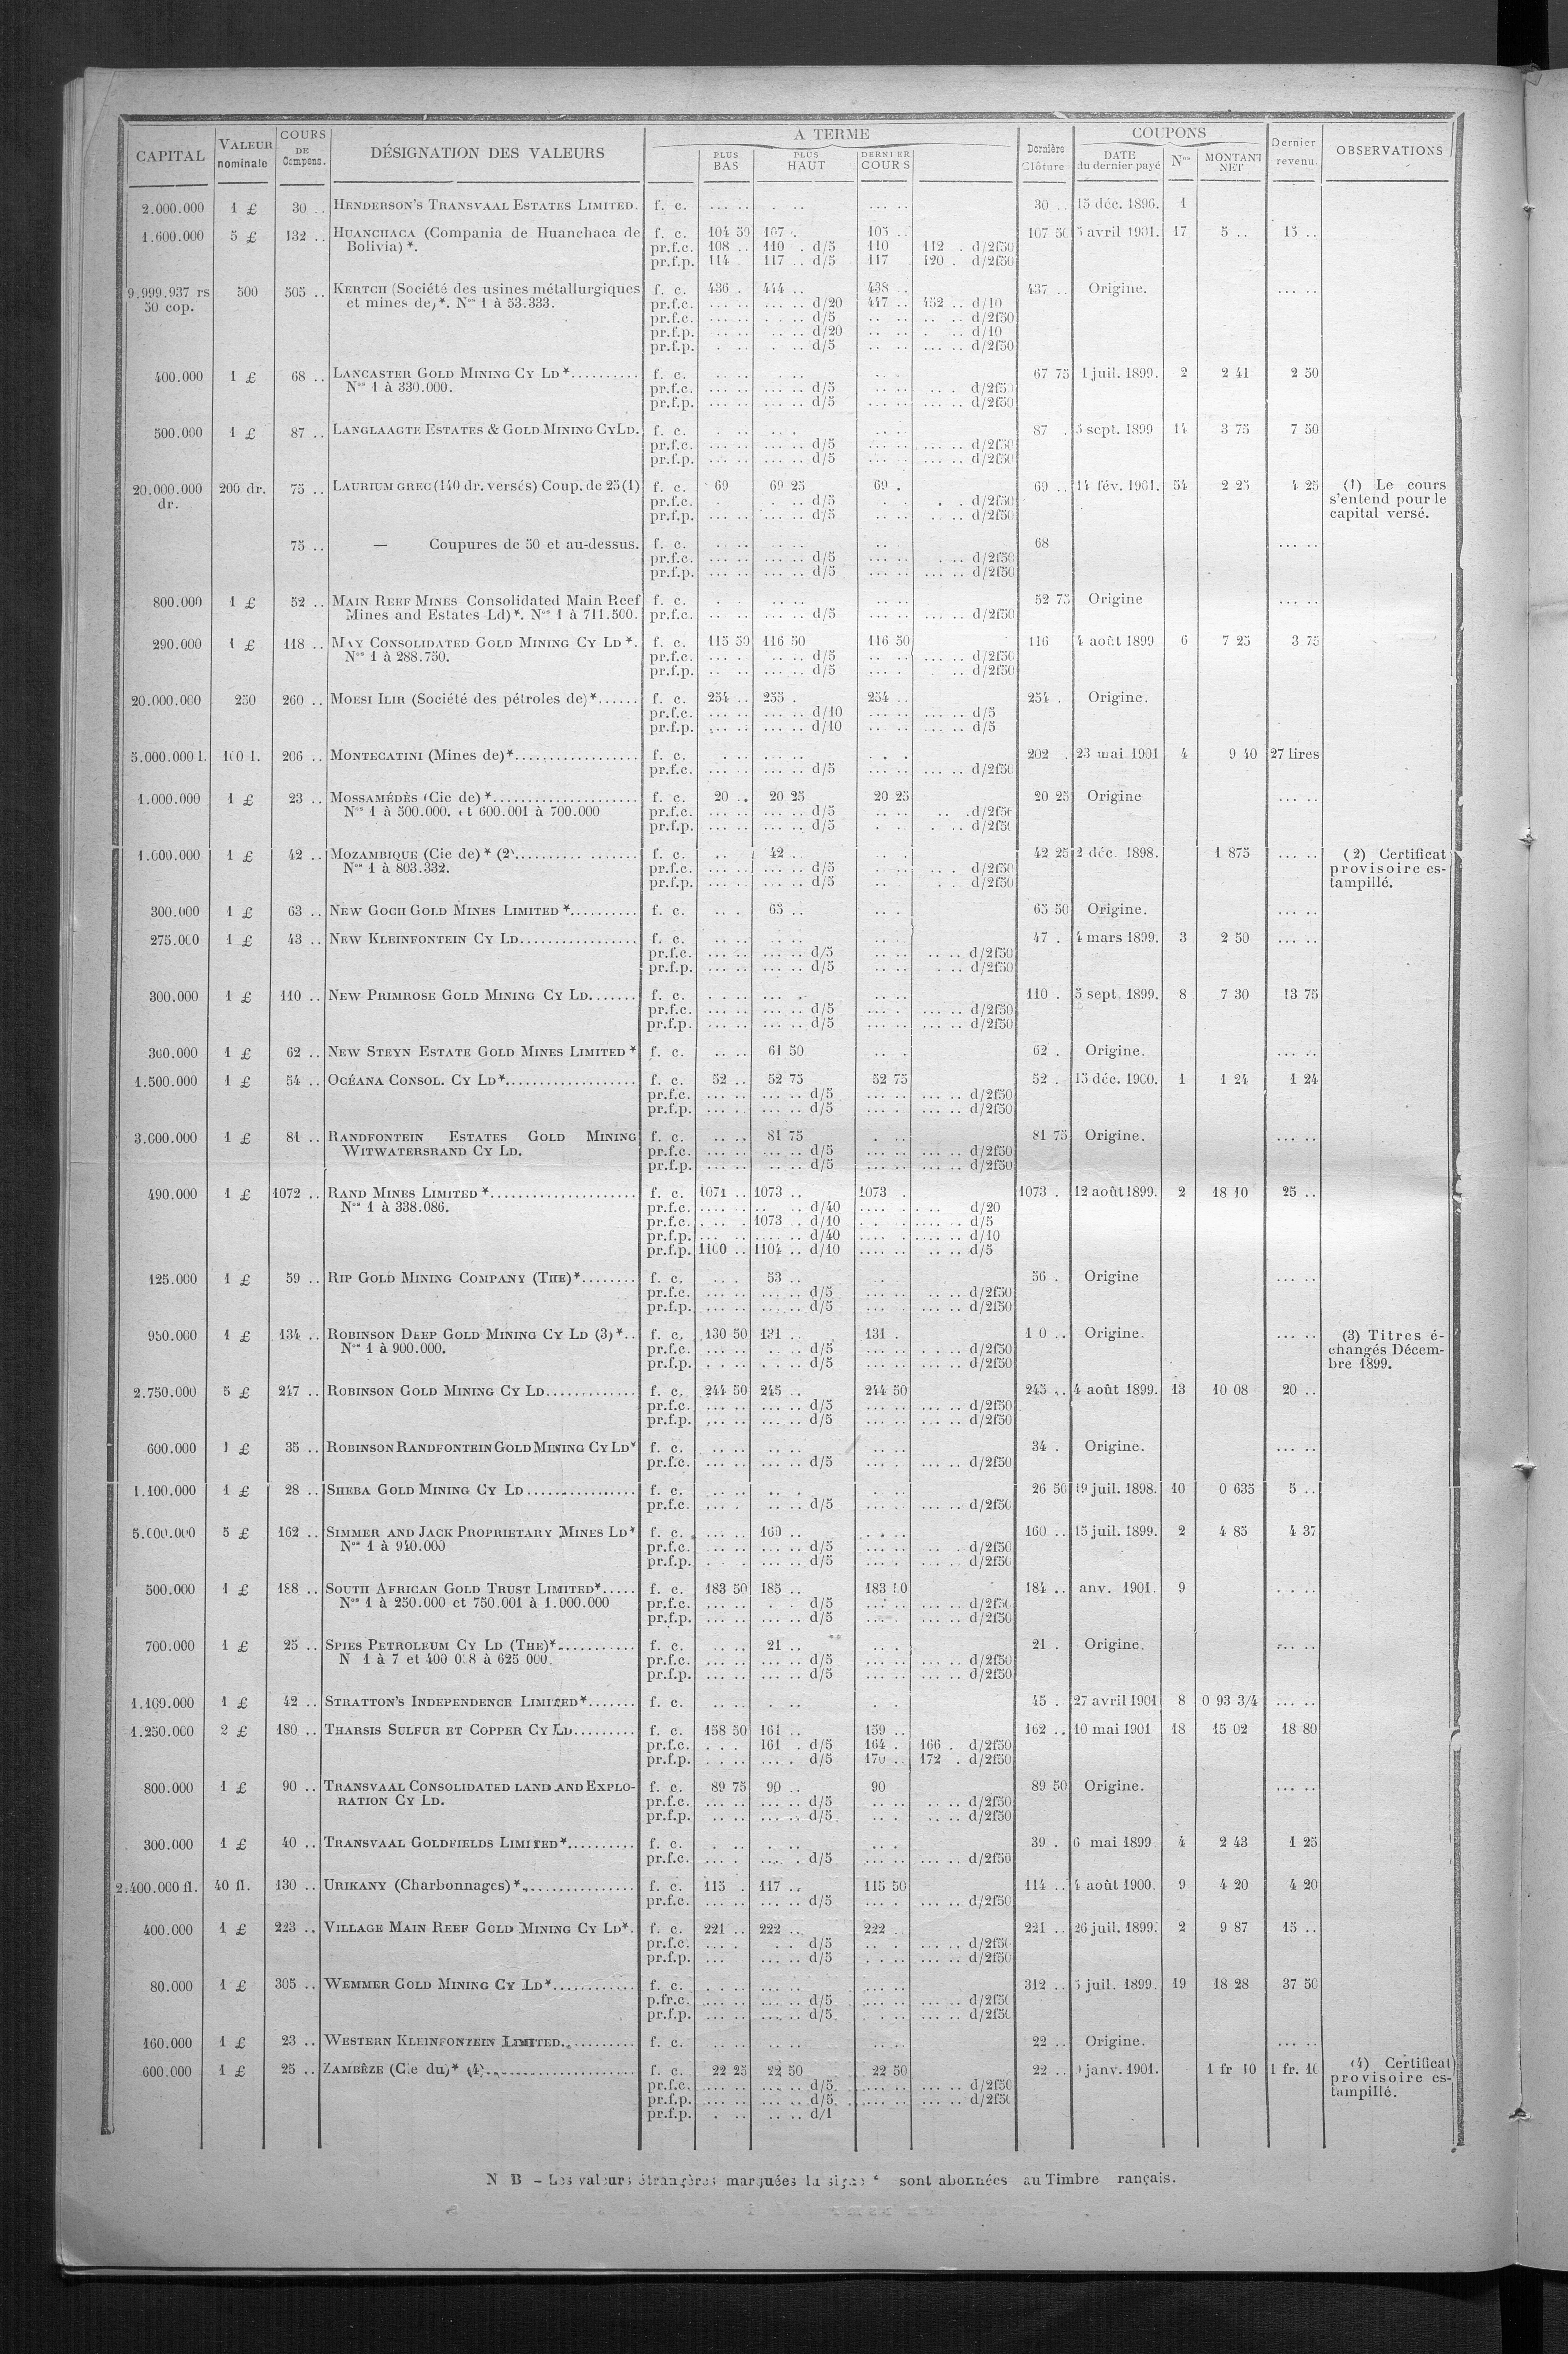 CAPITAL VALEUR nominale COURS DE Compens. DÉSIGNATION DES VALEURS A TERME PLUS BAS PLUS HAUT DERNIER COURS Dernière Clôture COUPONS DATE du dernier payé Nos MONTANT NET Dernier revenu. OBSERVATIONS
2.000.000 1 £ 30 .. HENDERSON'S TRANSVAAL ESTATES LIMITED. f. c. 30 .. 15 déc. 1896. 1
1.600.000 5 £ 132 .. HUANCHACA (Compania de Huanchaca de f. c. 104 50 107 . 105 .. 107 50 5 avril 1901. 17 5 .. 15 ..
Bolivia) *. pr.f.c. 108 .. 110 . d/5 110 112 . d/2f50
pr.f.p. 114 . 117 .. d/5 117 120 . d/2f50
9.999.937 rs 500 505 .. KERTCH (Société des usines métallurgiques f. c. 436 . 444 .. 438 .. 437 .. Origine. ... ..
50 cop. et mines de) *. Nos 1 à 53.333. pr.f.c. ... .. d/20 447 .. 452 .. d/10
pr.f.c. ... .. d/5 .. .. d/2f50
pr.f.p. ... .. d/20 .. .. d/10
pr.f.p. ... .. d/5 .. .. d/2f50
400.000 1 £ 68 .. LANCASTER GOLD MINING CY LD *.......... f. c. 67 75 1 juil. 1899. 2 2 41 2 50
Nos 1 à 330.000. pr.f.c. ... .. d/5 ... .. d/2f50
pr.f.p. ... .. d/5 ... .. d/2f50
500.000 1 £ 87 .. LANGLAAGTE ESTATES & GOLD MINING CY LD. f. c. 87 . 5 sept. 1899 14 3 75 7 50
pr.f.c. ... .. d/5 ... .. d/2f50
pr.f.p. ... .. d/5 ... .. d/2f50
20.000.000 200 dr. 75 .. LAURIUM GREC (140 dr. versés) Coup. de 25 (1) f. c. 69 69 25 69 . 69 .. 14 fév. 1901. 54 2 25 4 25 (1) Le cours
dr. pr.f.c. ... .. d/5 ... .. d/2f50 s'entend pour le
pr.f.p. ... .. d/5 ... .. d/2f50 capital versé.
75 .. — Coupures de 50 et au-dessus. f. c. 68 ... ..
pr.f.c. ... .. d/5 ... .. d/2f50
pr.f.p. ... .. d/5 ... .. d/2f50
800.000 1 £ 52 .. MAIN REEF MINES Consolidated Main Reef f. c. 52 75 Origine ... ..
Mines and Estates Ld) *. Nos 1 à 711.500. pr.f.c. ... .. d/5 ... .. d/2f50
290.000 1 £ 118 .. MAY CONSOLIDATED GOLD MINING CY LD *. f. c. 115 50 116 50 116 50 116 4 août 1899 6 7 25 3 75
Nos 1 à 288.750. pr.f.c. ... .. d/5 ... .. d/2f50
pr.f.p. ... .. d/5 ... .. d/2f50
20.000.000 250 260 .. MOESI ILIR (Société des pétroles de) *...... f. c. 254 .. 255 . 254 .. 254 . Origine.
pr.f.c. ... .. d/10 ... .. d/5
pr.f.p. ... .. d/10 ... .. d/5
5.000.000 l. 100 l. 206 .. MONTECATINI (Mines de) *................. f. c. 202 . 23 mai 1901 4 9 40 27 lires
pr.f.c. ... .. d/5 ... .. d/2f50
1.000.000 1 £ 23 .. MOSSAMÉDÈS (Cie de) *..................... f. c. 20 .. 20 25 20 25 20 25 Origine ... ..
Nos 1 à 500.000. et 600.001 à 700.000 pr.f.c. ... .. d/5 .. .. d/2f50
pr.f.p. ... .. d/5 .. .. d/2f50
1.000.000 1 £ 42 .. MOZAMBIQUE (Cie de) * (2)................. f. c. 42 .. 42 25 2 déc. 1898. 1 875 ... .. (2) Certificat
Nos 1 à 803.332. pr.f.c. ... .. d/5 ... .. d/2f50 provisoire es-
pr.f.p. ... .. d/5 ... .. d/2f50 tampillé.
300.000 1 £ 63 .. NEW GOCH GOLD MINES LIMITED *.......... f. c. 65 .. 65 50 Origine. ... ..
275.000 1 £ 43 .. NEW KLEINFONTEIN CY LD................. f. c. 47 . 4 mars 1899. 3 2 50 ... ..
pr.f.c. ... .. d/5 ... .. d/2f50
pr.f.p. ... .. d/5 ... .. d/2f50
300.000 1 £ 110 .. NEW PRIMROSE GOLD MINING CY LD....... f. c. 110 . 5 sept. 1899. 8 7 30 13 75
pr.f.c. ... .. d/5 ... .. d/2f50
pr.f.p. ... .. d/5 ... .. d/2f50
300.000 1 £ 62 .. NEW STEYN ESTATE GOLD MINES LIMITED * f. c. 61 50 62 . Origine. ... ..
1.500.000 1 £ 54 .. OCÉANA CONSOL. CY LD*................... f. c. 52 .. 52 75 52 75 52 . 15 déc. 1900. 1 1 24 1 24
pr.f.c. ... .. d/5 ... .. d/2f50
pr.f.p. ... .. d/5 ... .. d/2f50
3.000.000 1 £ 81 .. RANDFONTEIN ESTATES GOLD MINING f. c. 81 75 81 75 Origine. ... ..
WITWATERSRAND CY LD. pr.f.c. ... .. d/5 ... .. d/2f50
pr.f.p. ... .. d/5 ... .. d/2f50
490.000 1 £ 1072 .. RAND MINES LIMITED *..................... f. c. 1071 .. 1073 .. 1073 . 1073 . 12 août 1899. 2 18 10 25 ..
Nos 1 à 338.086. pr.f.c. ... .. d/40 ... .. d/20
pr.f.c. 1073 .. d/10 ... .. d/5
pr.f.p. ... .. d/40 ... .. d/10
pr.f.p. 1100 .. 1104 .. d/10 ... .. d/5
125.000 1 £ 59 .. RIP GOLD MINING COMPANY (THE)*........ f. c. 53 .. 56 . Origine ... ..
pr.f.c. ... .. d/5 ... .. d/2f50
pr.f.p. ... .. d/5 ... .. d/2f50
950.000 1 £ 134 .. ROBINSON DEEP GOLD MINING CY LD (3) *.. f. c. 130 50 131 .. 131 . 1 0 .. Origine. ... .. (3) Titres é-
Nos 1 à 900.000. pr.f.c. ... .. d/5 ... .. d/2f50 changés Décem-
pr.f.p. ... .. d/5 ... .. d/2f50 bre 1899.
2.750.000 5 £ 247 .. ROBINSON GOLD MINING CY LD............. f. c. 244 50 245 .. 244 50 245 .. 4 août 1899. 13 10 08 20 ..
pr.f.c. ... .. d/5 ... .. d/2f50
pr.f.p. ... .. d/5 ... .. d/2f50
600.000 1 £ 35 .. ROBINSON RANDFONTEIN GOLD MINING CY LD* f. c. 34 . Origine. ... ..
pr.f.c. ... .. d/5 ... .. d/2f50
1.100.000 1 £ 28 .. SHEBA GOLD MINING CY LD ................ f. c. 26 50 19 juil. 1898. 10 0 635 5 ..
pr.f.c. ... .. d/5 ... .. d/2f50
5.000.000 5 £ 162 .. SIMMER AND JACK PROPRIETARY MINES LD* f. c. 160 .. 160 .. 15 juil. 1899. 2 4 85 4 37
Nos 1 à 940.000 pr.f.c. ... .. d/5 ... .. d/2f50
pr.f.p. ... .. d/5 ... .. d/2f50
500.000 1 £ 188 .. SOUTH AFRICAN GOLD TRUST LIMITED*..... f. c. 183 50 185 .. 183 50 184 .. anv. 1901. 9
Nos 1 à 250.000 et 750.001 à 1.000.000 pr.f.c. ... .. d/5 ... .. d/2f50
pr.f.p. ... .. d/5 ... .. d/2f50
700.000 1 £ 25 .. SPIES PETROLEUM CY LD (THE)*........... f. c. 21 .. 21 . Origine. ... ..
N 1 à 7 et 400 008 à 625 000. pr.f.c. ... .. d/5 ... .. d/2f50
pr.f.p. ... .. d/5 ... .. d/2f50
1.100.000 1 £ 42 .. STRATTON'S INDEPENDENCE LIMITED*....... f. c. 45 . 27 avril 1901 8 0 93 3/4 ... ..
1.250.000 2 £ 180 .. THARSIS SULFUR ET COPPER CY LD......... f. c. 158 50 161 .. 159 .. 162 .. 10 mai 1901 18 15 02 18 80
pr.f.c. 161 . d/5 164 . 166 . d/2f50
pr.f.p. ... .. d/5 170 .. 172 . d/2f50
800.000 1 £ 90 .. TRANSVAAL CONSOLIDATED LAND AND EXPLO- f. c. 89 75 90 .. 90 89 50 Origine. ... ..
RATION CY LD. pr.f.c. ... .. d/5 ... .. d/2f50
pr.f.p. ... .. d/5 ... .. d/2f50
300.000 1 £ 40 .. TRANSVAAL GOLDFIELDS LIMITED*.......... f. c. 39 . 6 mai 1899. 4 2 43 1 25
pr.f.c. ... .. d/5 ... .. d/2f50
2.400.000 fl. 40 fl. 130 .. URIKANY (Charbonnages) *................ f. c. 115 . 117 .. 115 50 114 .. 4 août 1900. 9 4 20 4 20
pr.f.c. ... .. d/5 ... .. d/2f50
400.000 1 £ 223 .. VILLAGE MAIN REEF GOLD MINING CY LD*. f. c. 221 .. 222 ... 222 .. 221 .. 26 juil. 1899. 2 9 87 15 ..
pr.f.c. ... .. d/5 ... .. d/2f50
pr.f.p. ... .. d/5 ... .. d/2f50
80.000 1 £ 305 .. WEMMER GOLD MINING CY LD*............ f. c. 312 .. 5 juil. 1899. 19 18 28 37 50
p.fr.c. ... .. d/5 ... .. d/2f50
pr.f.p. ... .. d/5 ... .. d/2f50
160.000 1 £ 23 .. WESTERN KLEINFONTEIN LIMITED.......... f. c. 22 .. Origine. ... ..
600.000 1 £ 25 .. ZAMBÈZE (Cie du) * (4)..................... f. c. 22 25 22 50 22 50 22 .. janv. 1901. 1 fr 10 1 fr. 10 (4) Certificat
pr.f.c. ... .. d/5 ... .. d/2f50 provisoire es-
pr.f.p. ... .. d/5 ... .. d/2f50 tampillé.
pr.f.p. ... .. d/1
N B – Les valeurs étrangères marquées la signe * sont abonnées au Timbre rançais.